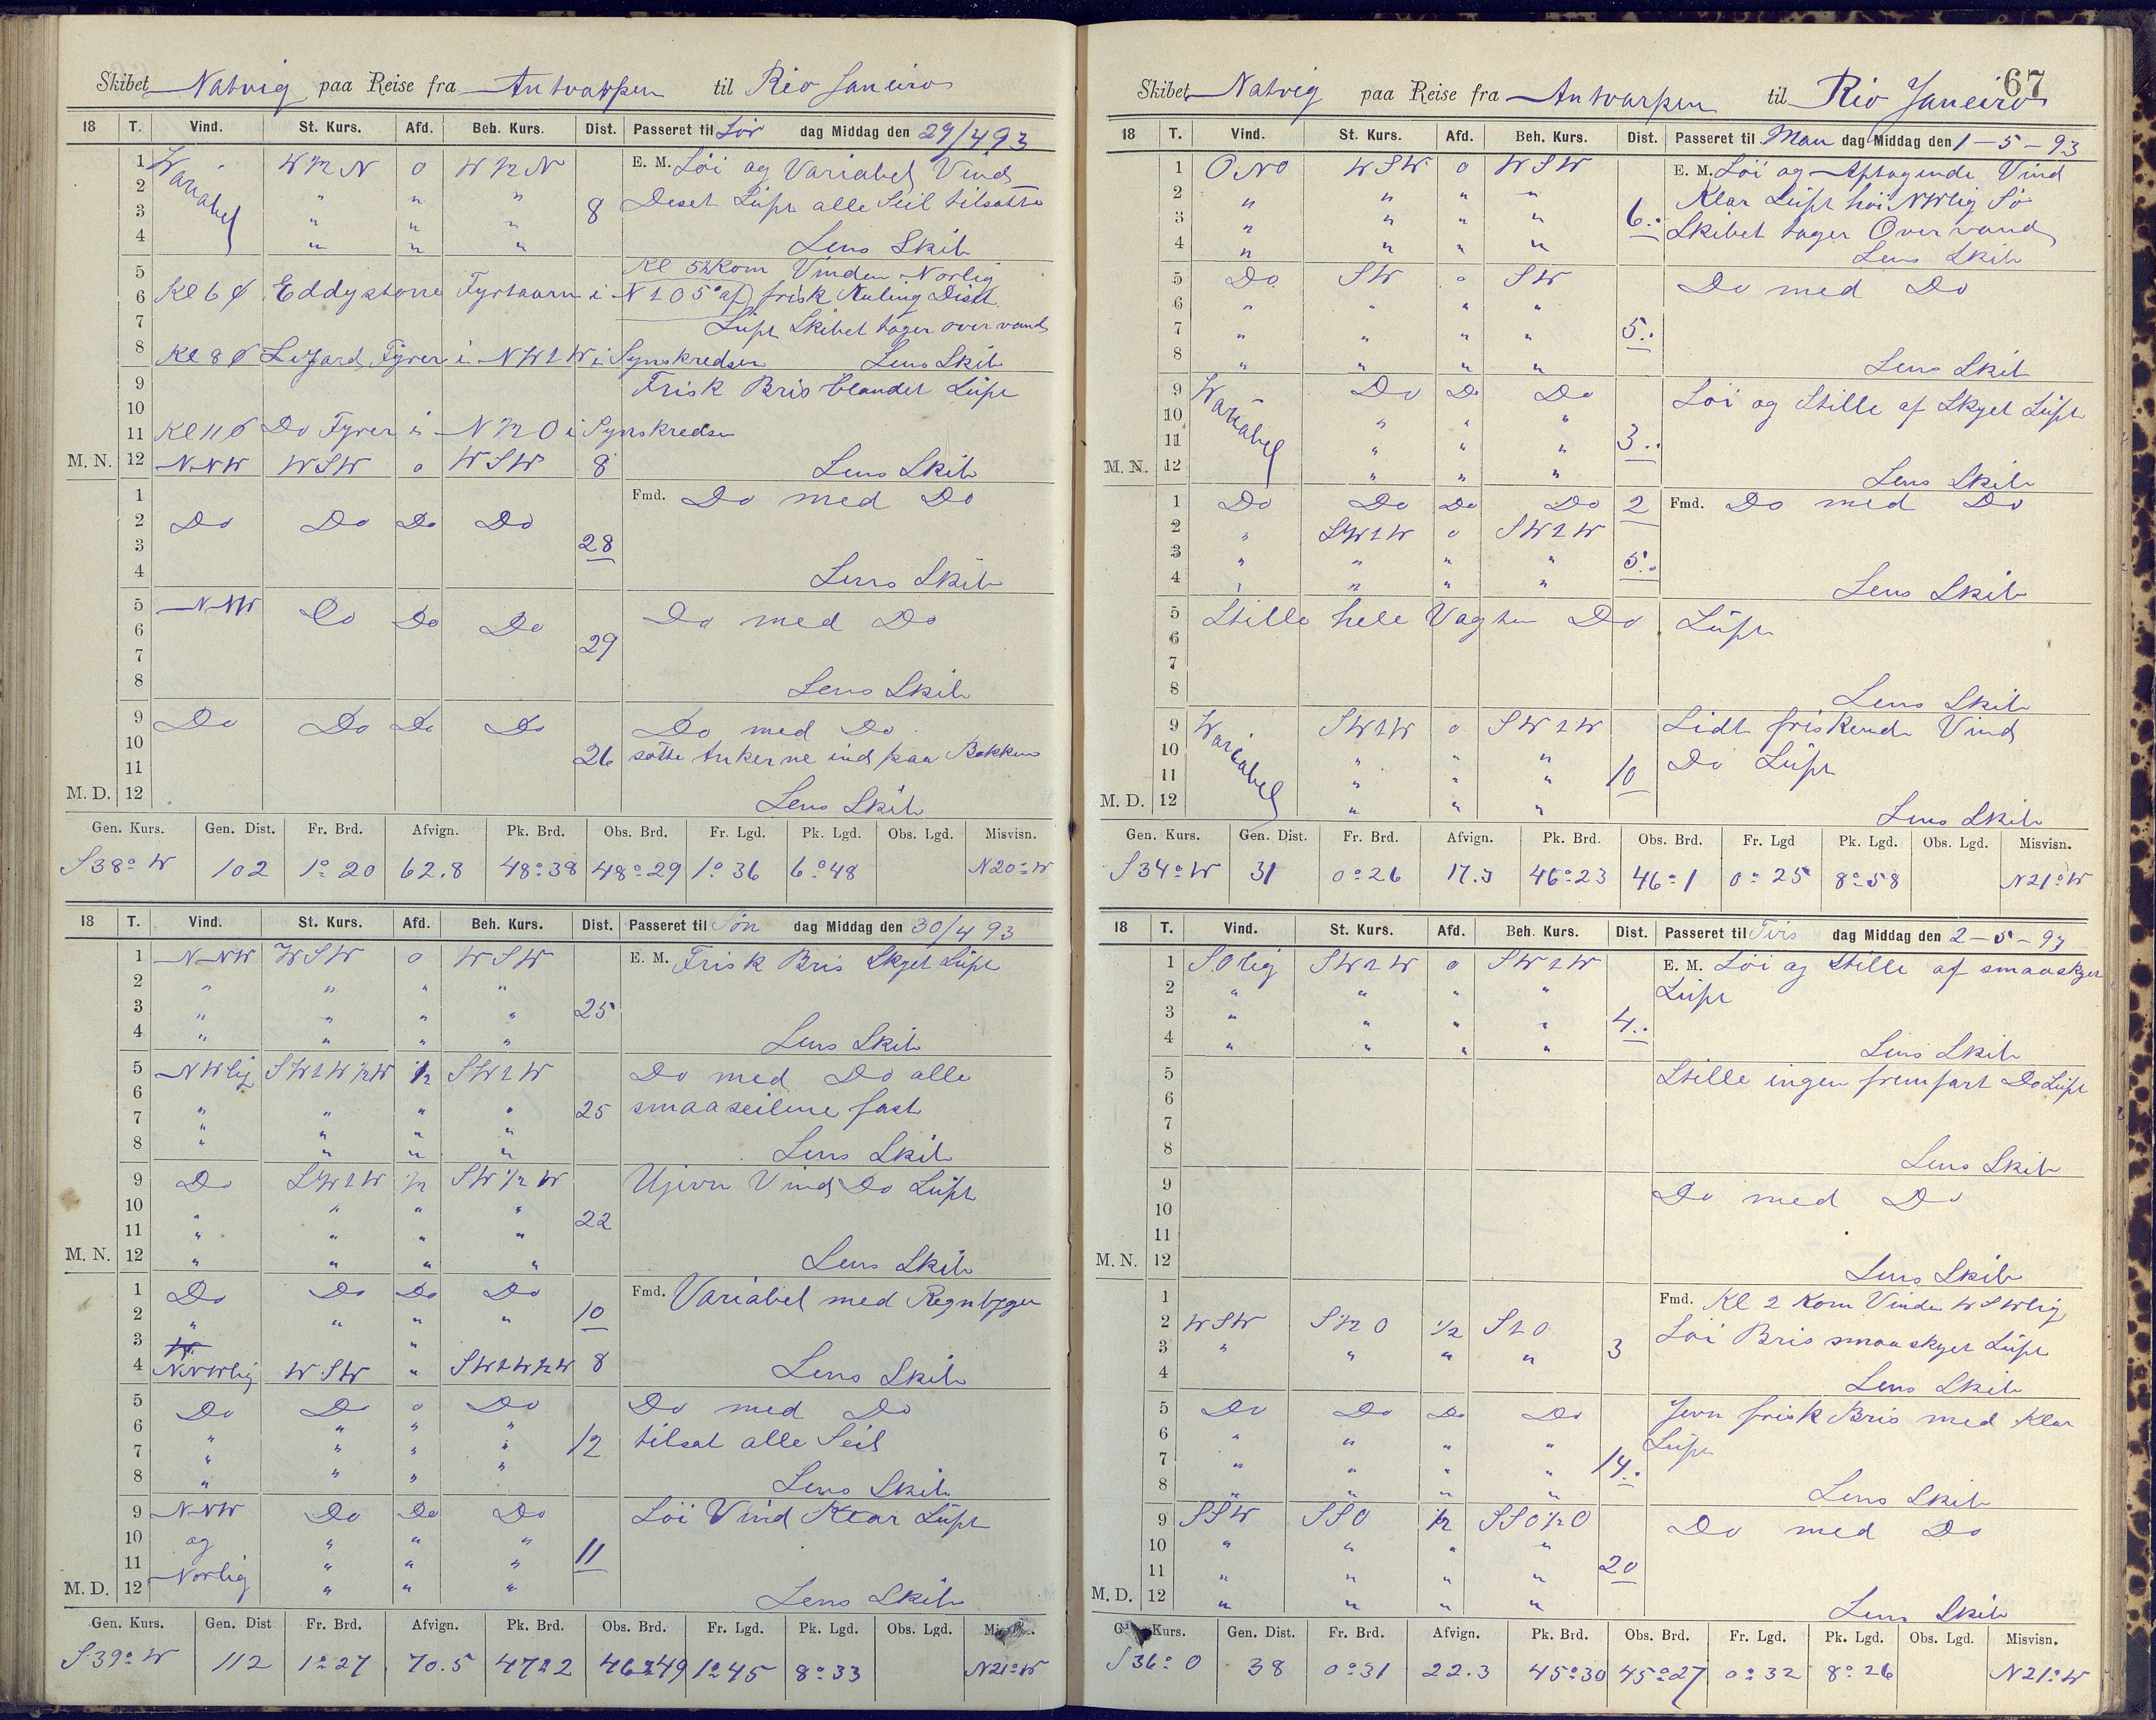 Skibet Natvig paa Reise fra Antvarpen til Rio Janeiro
18 T. Vind. St. Kurs. Afd. Beh. Kurs. Dist. Passeret til Lör dag Middag den 29/4 93
1 Wariabel W ½ N 0 W ½ N E. M. Löi og Variabel Vind
2 " " " 8 Deset Luft alle Seil tilsatte
3 " " "
4 " " " Lens Skib
5 Kl 5½ Kom Vinden Norlig
6 Kl 6 Eddystone Fyrtaarn i N 1 O 5° af frisk Kuling Diset
7 Luft Skibet tager over vand
8 Kl 8 Lizard Fyrer i NW 2 W i Synskredsen Lens Skib
9 Frisk Bris blandet Luft
10
11 Kl 11 Do Fyrer i N ½ O i Synskredsen
M. N. 12 NNW WSW 0 WSW 8 Lens Skib
1 Fmd. Do med Do
2 Do Do Do Do
3 28
4 Lens Skib
5 NNW Do Do Do Do med Do
6 29
7
8 Lens Skib
9 Do Do Do Do Do med Do
10 26 satte Ankerne ind paa Bakken
11
M. D. 12 Lens Skib
Gen. Kurs. Gen. Dist. Fr. Brd. Afvign. Pk. Brd. Obs. Brd. Fr. Lgd. Pk. Lgd. Obs. Lgd. Misvisn.
S 38° W 102 1° 20 62.8 48° 38 48° 29 1° 36 6° 48 N 20° W
18 T. Vind. St. Kurs. Afd. Beh. Kurs. Dist. Passeret til Søn dag Middag den 30/4 93
1 NNW WSW 0 WSW E. M. Frisk Bris Skyet Luft
2 " " " "
3 " " " " 25
4 " " " " Lens Skib
5 NWlig SW 2 W ½ W ½ SW 2 W Do med Do alle
6 " " " " 25 smaaseilene fast
7 " " " "
8 " " " " Lens Skib
9 Do SW 2 W ½ SW ½ W Ujevn Vind Do Luft
10 " " " " 22
11 " " " "
M. N. 12 " " " " Lens Skib
1 Do Do Do Do Fmd. Variabel med Regnbyger
2 " " " " 10
3 "
4 NNWlig WSW " SW 2 W ½ W 8 Lens Skib
5 Do Do 0 Do Do med Do
6 " " " " 12 tilsat alle Seil
7 " " " "
8 " " " " Lens Skib
9 NNW Do Do Do Löi Vind Klar Luft
10 og " " "
11 Norlig " " " 11
M. D. 12 " " " Lens Skib
Gen. Kurs. Gen. Dist Fr. Brd. Afvign. Pk. Brd. Obs. Brd. Fr. Lgd. Pk. Lgd. Obs. Lgd.
S 39° W 112 1° 27 70.5 47° 2 46° 49 1° 45 8° 33 N 21° W
67
Skibet Natvig paa Reise fra Antvarpen til Rio Janeiro
18 T. Vind. St. Kurs. Afd. Beh. Kurs. Dist. Passeret til Man dag Middag den 1 – 5 – 93
1 ONO WSW 0 WSW E. M. Löi og Aftagende Vind
2 " " " " Klar Luft höi NWlig Sö
3 " " " " 6.. Skibet tager Overvand
4 " " " " Lens Skib
5 Do SW 0 SW Do med Do
6 " " " "
7 " " " " 5..
8 " " " " Lens Skib
9 Wariabel Do Do Do Löi og Stille af Skyet Luft
10 " " "
11 " " " 3..
M. N. 12 " " " Lens Skib
1 Do Do Do Do 2 Fmd. Do med Do
2 " SW 2 W 0 SW 2 W
3 " " " " 5..
4 " " " " Lens Skib
5 Stille hele Vagten Do Luft
6
7
8 Lens Skib
9 Wariabel SW 2 W 0 SW 2 W Lidt friskende Vind
10 " " " Do Luft
11 " " " 10
M. D. 12 " " " Lens Skib
Gen. Kurs. Gen. Dist. Fr. Brd. Afvign. Pk. Brd. Obs. Brd. Fr. Lgd Pk. Lgd. Obs. Lgd. Misvisn.
S 34° W 31 0° 26 17.3 46° 23 46° 1 0° 25 8° 58 N 21° W
18 T. Vind. St. Kurs. Afd. Beh. Kurs. Dist. Passeret til Tirs dag Middag den 2 – 5 – 93
1 SOlig SW 2 W 0 SW 2 W E. M. Löi og Stille af smaaskyet
2 " " " " Luft
3 " " " " 4..
4 " " " " Lens Skib
5 Stille ingen fremfart Do Luft
6
7
8 Lens Skib
9 Do med Do
10
11
M. N. 12 Lens Skib
1 Fmd. Kl 2 Kom Vinden WSWlig
2 WSW S ½ O ½ S 2 O Löi Bris smaaskyet Luft
3 " " " " 3
4 Lens Skib
5 Do Do Do Do Jevn frisk Bris med Klar
6 " " " " Luft
7 " " " " 14..
8 " " " " Lens Skib
9 SSW SSO ½ SSO ½ O Do med Do
10 " " " "
11 " " " " 20
M. D. 12 " " " " Lens Skib
Kurs. Gen. Dist. Fr. Brd. Afvign. Pk. Brd. Obs. Brd. Fr. Lgd. Pk. Lgd. Obs. Lgd. Misvisn.
S 36° O 38 0° 31 22.3 45° 30 45° 27 0° 32 8° 26 N 21° W